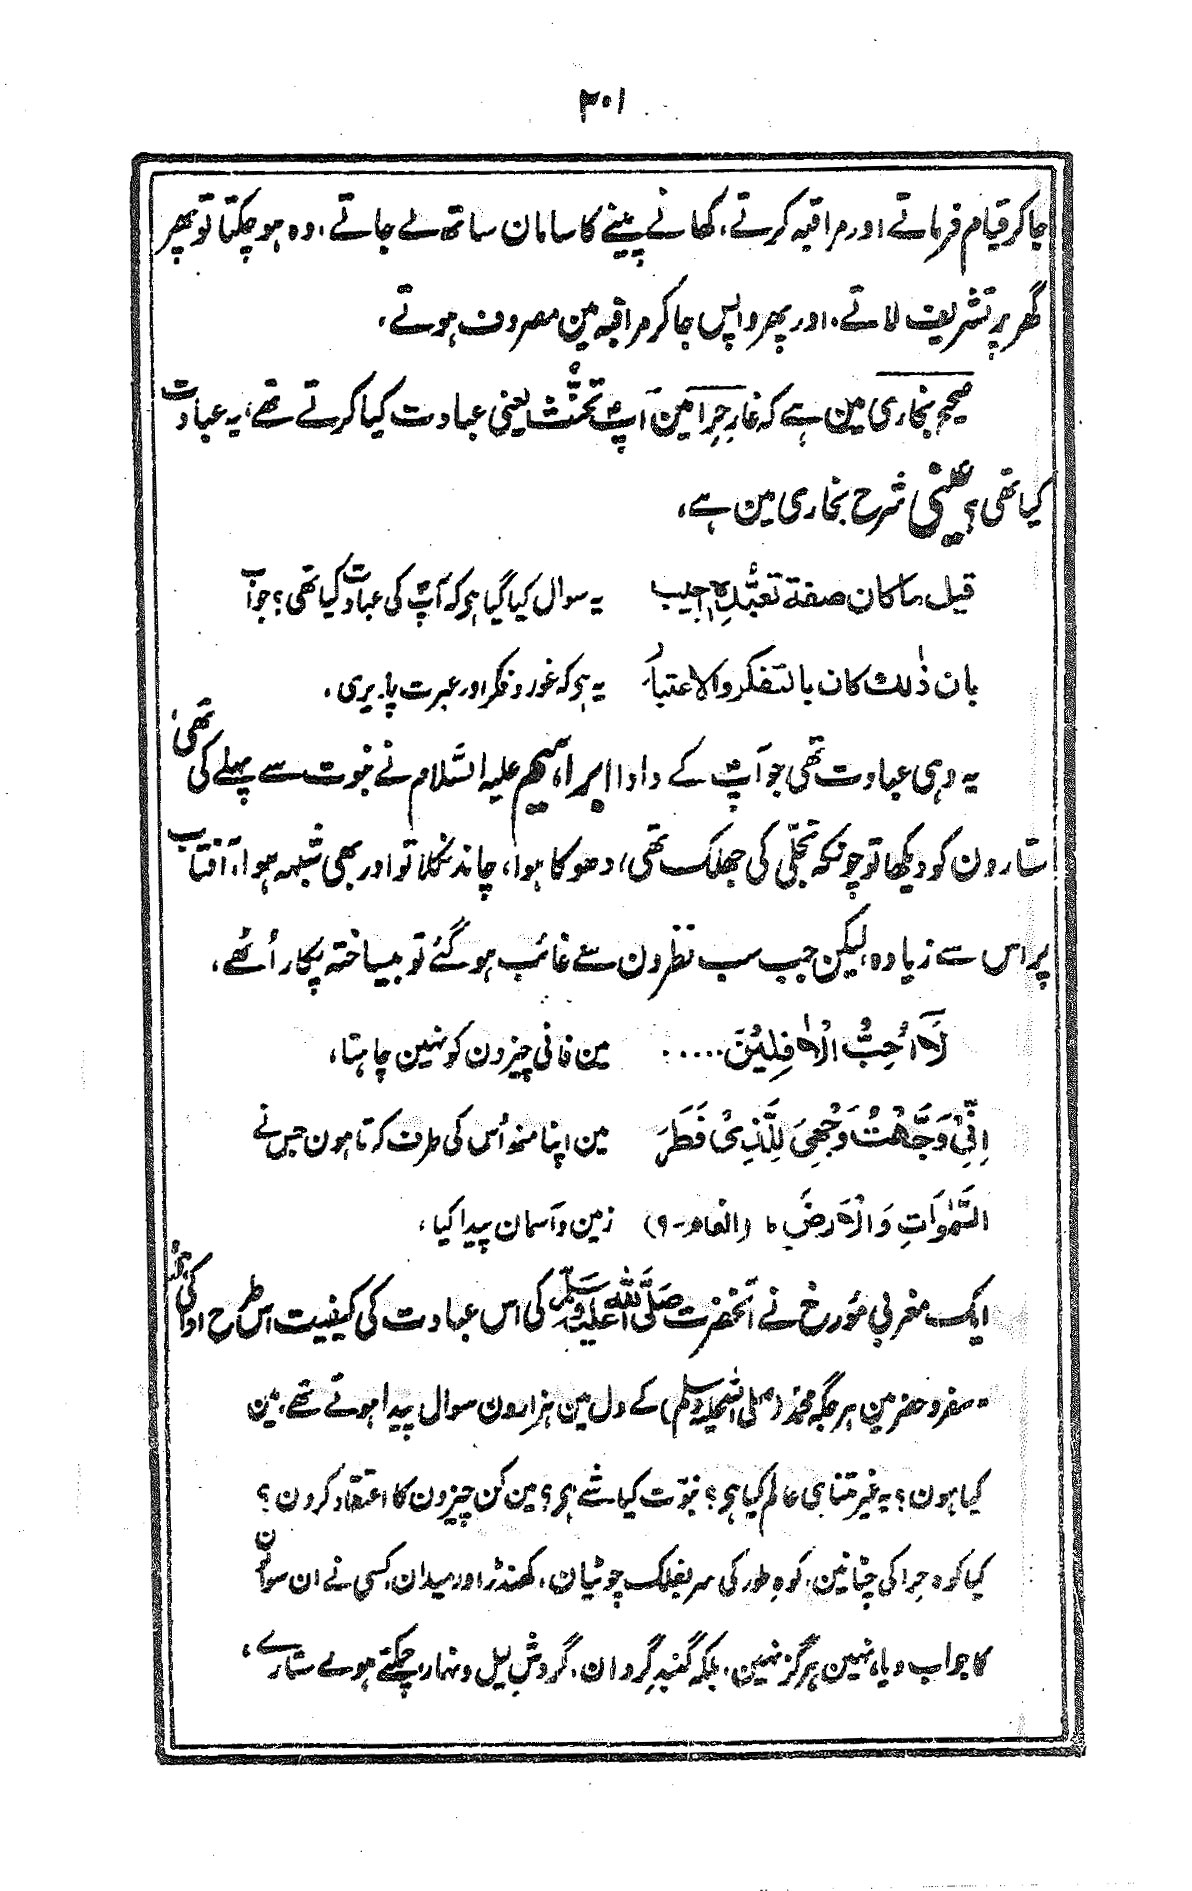 ۲۰۱
جا کر قیام فرماتے اور مراقبہ کرتے، کھانے پینے کا سامان ساتھ لے جاتے، وہ ہو چکتا تو پھر
گھر پر تشریف لاتے، اور پھر واپس جا کر مراقبہ مین مصروف ہوتے،
صحیح بخاری مین ہے کہ غارِ حِرا مین آپؐ تحنُّث یعنی عبادت کیا کرتے تھے، یہ عبادت
کیا تھی؟ عینی شرح بخاری مین ہے،
قیل ما کان صفة تعبُّدہٖ اجیب یہ سوال کیا گیا ہی کہ آپؐ کی عبادت کیا تھی؟ جواب
بان ذٰلك کان بالتفکر والاعتبار یہ ہی کہ غور و فکر اور عبرت پذیری،
یہ وہی عبادت تھی جو آپؐ کے دادا ابراہیم علیہ السّلام نے نبوت سے پہلے کی تھی،
ستارون کو دیکھا تو چونکہ تجلّی کی جھلک تھی، دھوکا ہوا، چاند نکلا تو اور بھی شبہہ ہوا، آفتاب
پر اس سے زیادہ، لیکن جب سب نظرون سے غائب ہو گئے تو بیساختہ پکار اُٹھے،
لَآ اُحِبُّ الْاٰفِلِیْنَ ..... مین فانی چیزون کو نہین چاہتا،
اِنِّیْ وَجَّهْتُ وَجْهِیَ لِلَّذِیْ فَطَرَ مین اپنا منھ اُس کی طرف کرتا ہون جس نے
السَّمٰوَاتِ وَالْاَرْضَ، (انعام-۹) زمین و آسمان پیدا کیا،
ایک مغربی مؤرخ نے آنحضرت صلّی اللہ علیہ وسلّم کی اس عبادت کی کیفیت اس طرح ادا کی ہے،
"سفر و حضر مین ہر جگہ محمّد (صلی اللہ علیہ وسلم) کے دل مین ہزارون سوال پیدا ہوتے تھے، مین
کیا ہون؟ یہ غیر متناہی عالم کیا ہی؟ نبوّت کیا شے ہی؟ مین کن چیزون کا اعتقاد کرون؟
کیا کوہِ حِرا کی چٹانین، کوہِ طور کی سر بفلک چوٹیان، کھنڈر اور میدان، کسی نے ان سوالون
کا جواب دیا، نہین ہرگز نہین، بلکہ گنبدِ گردان، گردشِ لیل و نہار، چمکتے ہوئے ستارے،